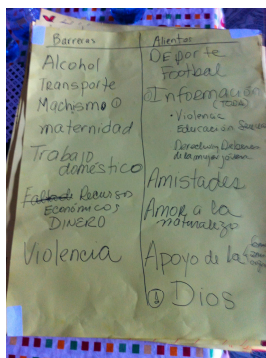 Barreras
Alcohol
Transporte
Machismo ①
maternidad
Trabajo
doméstico
Falta de Recursos
Económicos
DINERO
Violencia
Alientos
DEporte
Footbal
Información
(TODA)
• Violencia
Educación
Derechos y Deberes
de la mujer y joven
Amistades
Amor a la
naturaleza
Apoyo de la
① Dios